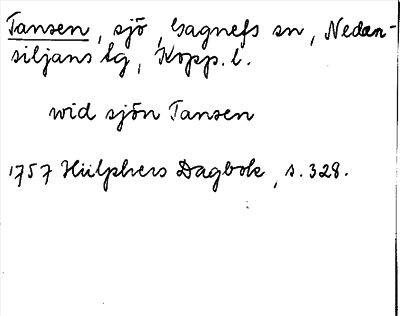 Tansen, sjö, Gagnefs sn, Nedan-
siljans tg, Kopp. l.
wid sjön Tansen
1757 Hülphers Dagbok, s. 328.